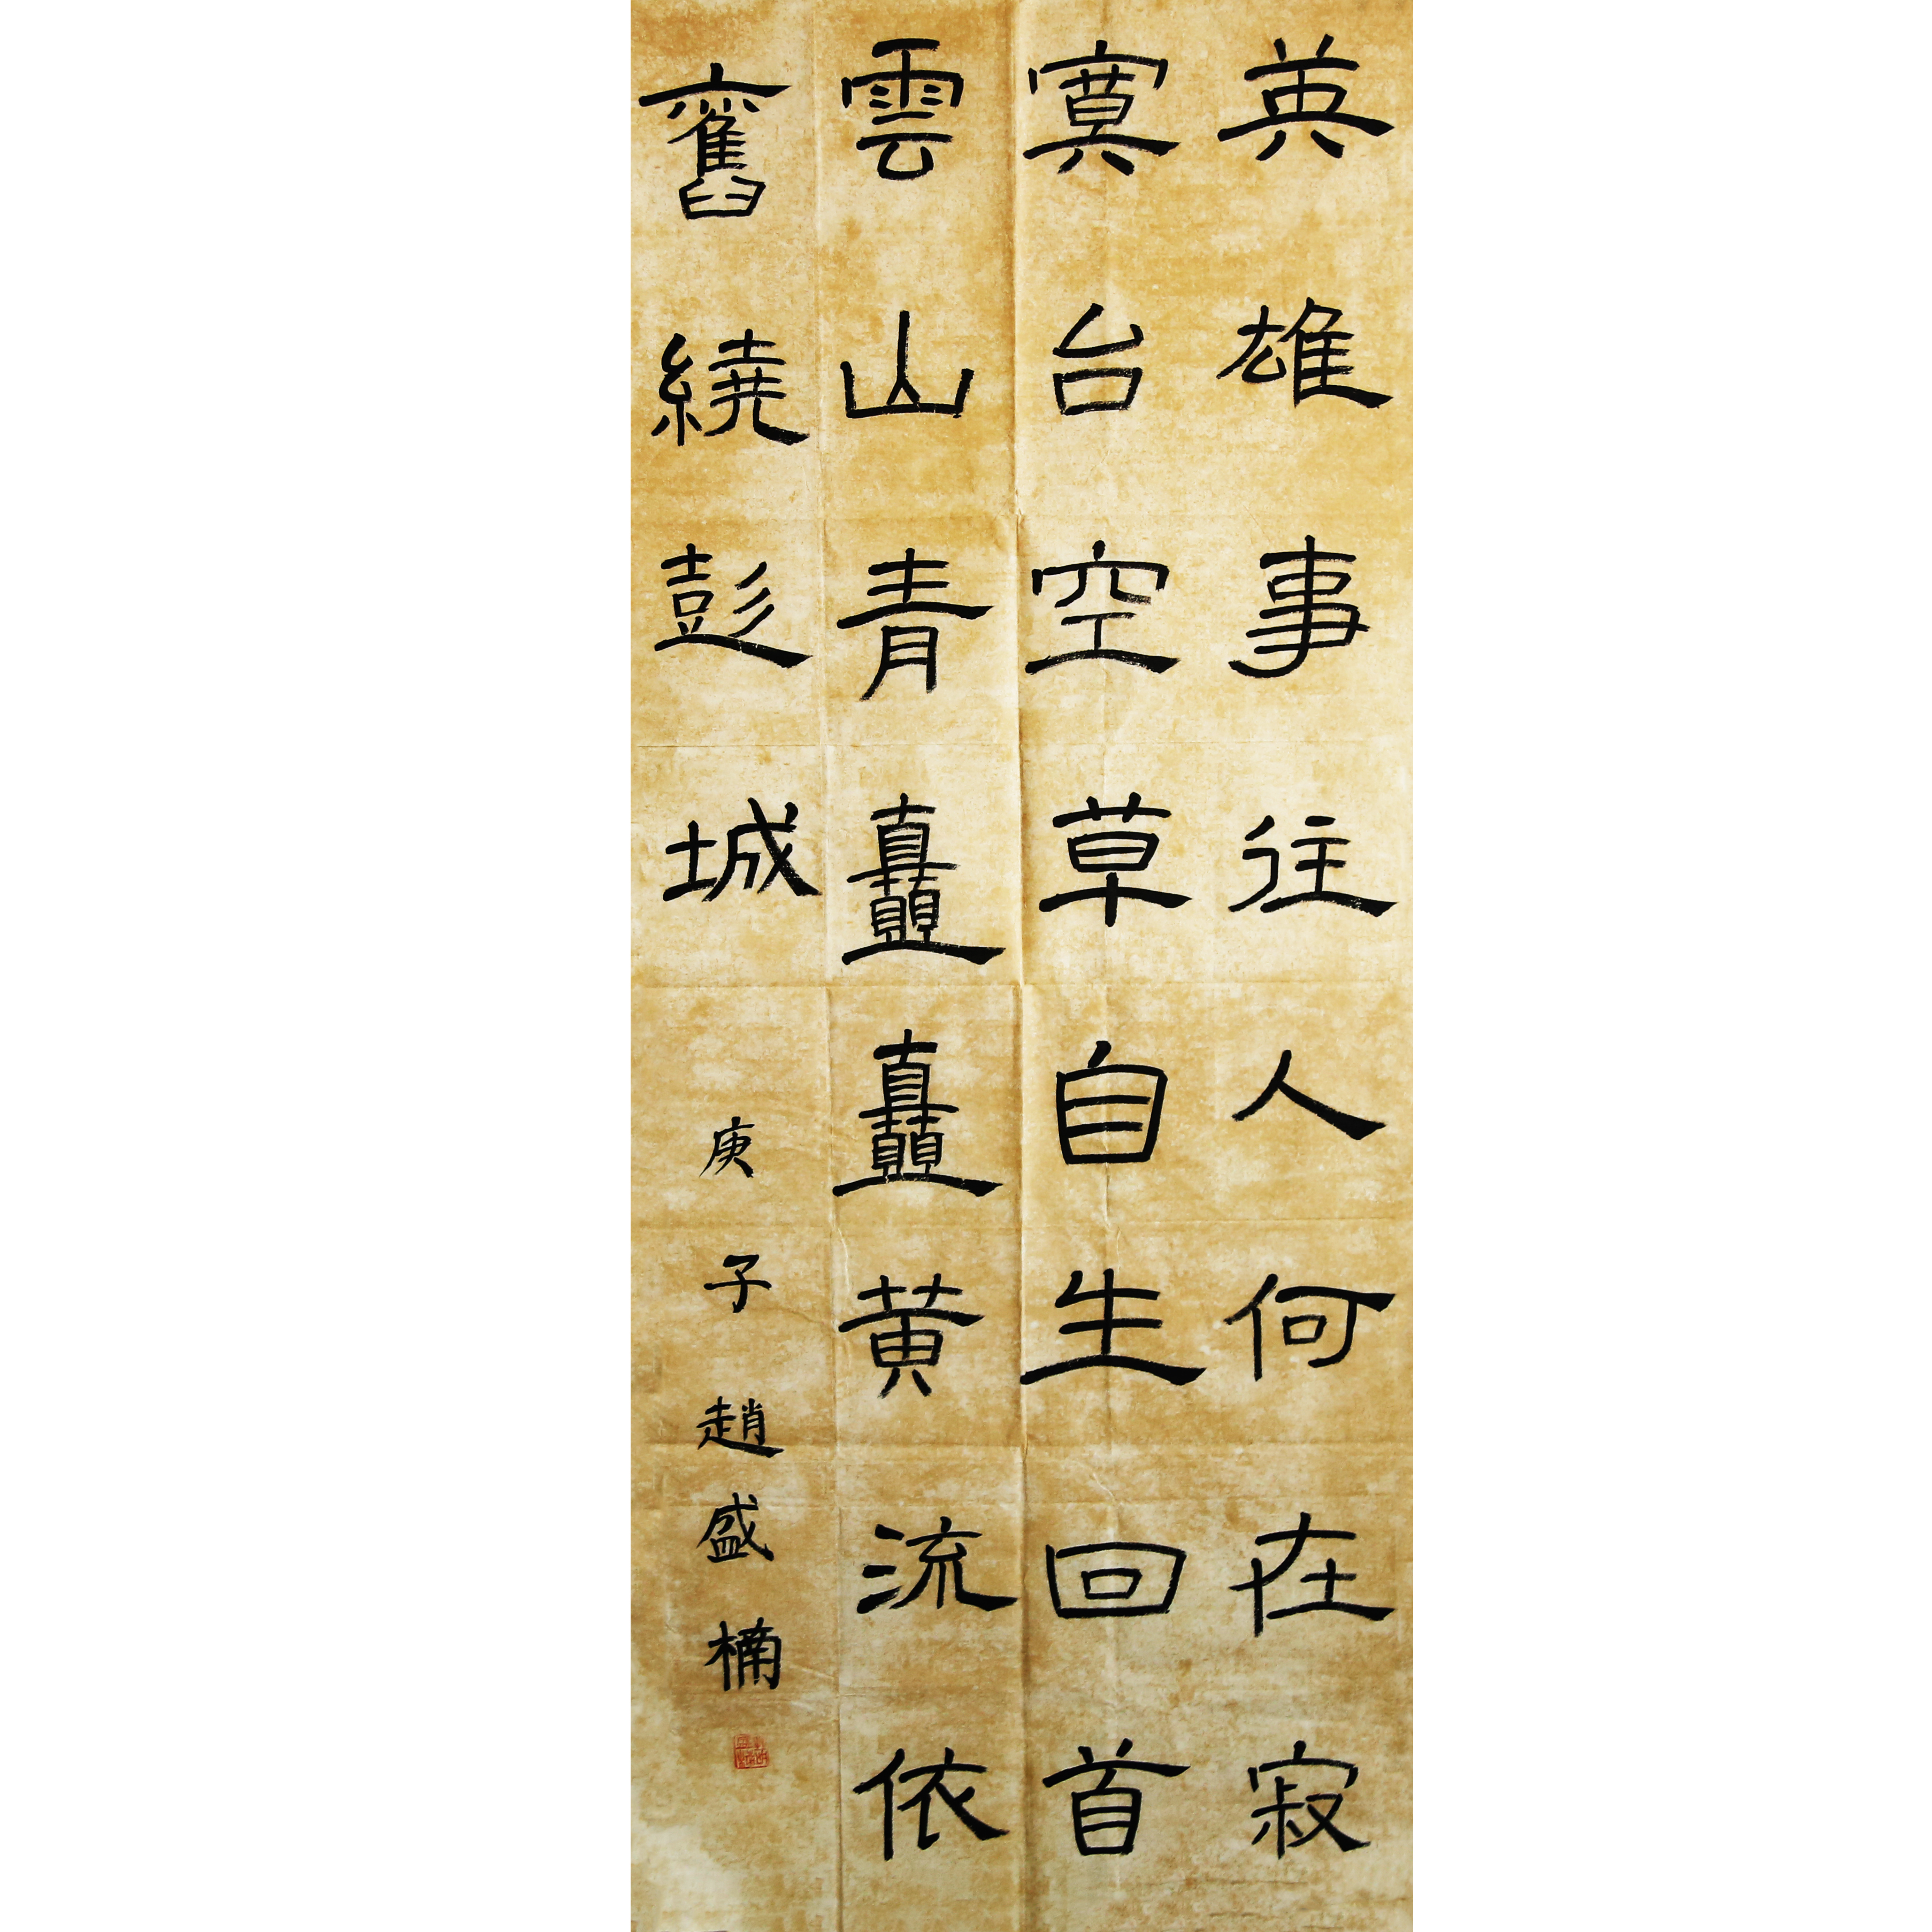 英雄事往人何在寂
寞台空草自生回首
雲山青矗矗黄流依
舊繞彭城 庚子趙盛楠